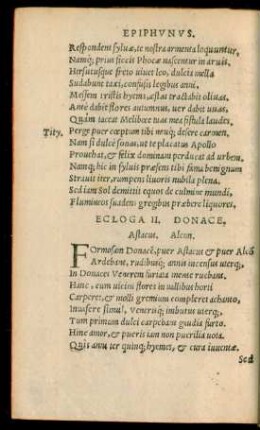 EPIPHVNVS.
Respondent syluæ, te nostra armenta loquuntur,
Namq; prius siccis Phocæ nascentur in aruis,
Hirsutusque freto uiuet leo, dulcia mella
Sudabunt taxi, confusis legibus anni,
Messem tristis hyems, æstas tractabit oliuas,
Ante dabit flores autumnus, uer dabit uuas,
Quàm taceat Meliboee tuas mea fistula laudes.
Tity. Perge puer cœptum tibi neuq; desere carmen,
Nam si dulcè sonas, ut te placatus Apollo
Prouehat, & felix dominam perducat ad urbem.
Namq; hic in syluis præsens tibi fama benignum
Strauit iter, rumpens liuoris nubila plena.
Sed iam Sol demittit equos de culmine mundi,
Flumineos suadens gregibus præbere liquores.
ECLOGA II. DONACE,
Astacus. Alcon.
FOrmosam Donacē, puer Astacus & puer Alcō
Ardebant, rudibusq; annis incensus uterq;
In Donaces Venerem furiata mente ruebant.
Hanc, cum uicini flores in uallibus horti
Carperet, & molli gremium compleret achanto,
Inuasere simul, Venerisq; imbutus uterq;
Tum primum dulci carpebant gaudia furto.
Hinc amor, & pueris iam non puerilia uota.
Quis anni ter quinq; hyemes, & cura iuuentæ.
Sed